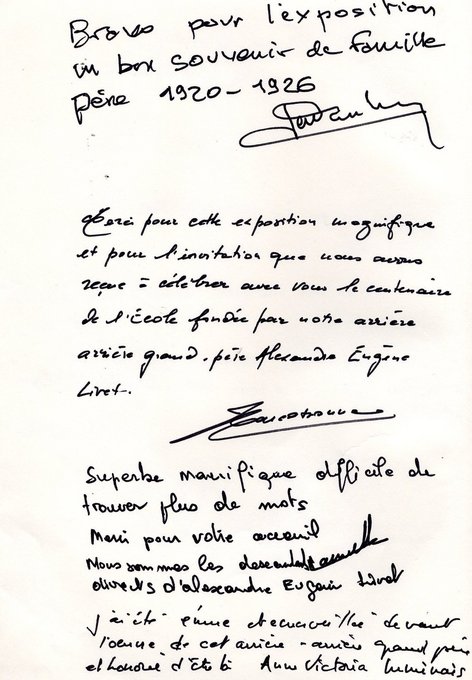 Bravo pour l'exposition
un bon souvenir de famille
père 1920-1926
Merci pour cette exposition magnifique
et pour l'invitation que nous avons
reçue à célébrer avec vous le centenaire
de l'École fondée par notre arrière
arrière grand-père Alexandre Eugène
Livet.
Superbe magnifique difficile de
trouver plus de mots
Merci pour votre acceuil
Nous sommes les descendants
directs d'Alexandre Eugain Livet
J'ai été émue et émerveillée devant
l'oeuvre de cet arrière-arrière grand père
et honorée d'être là Anne Victoria Luminais